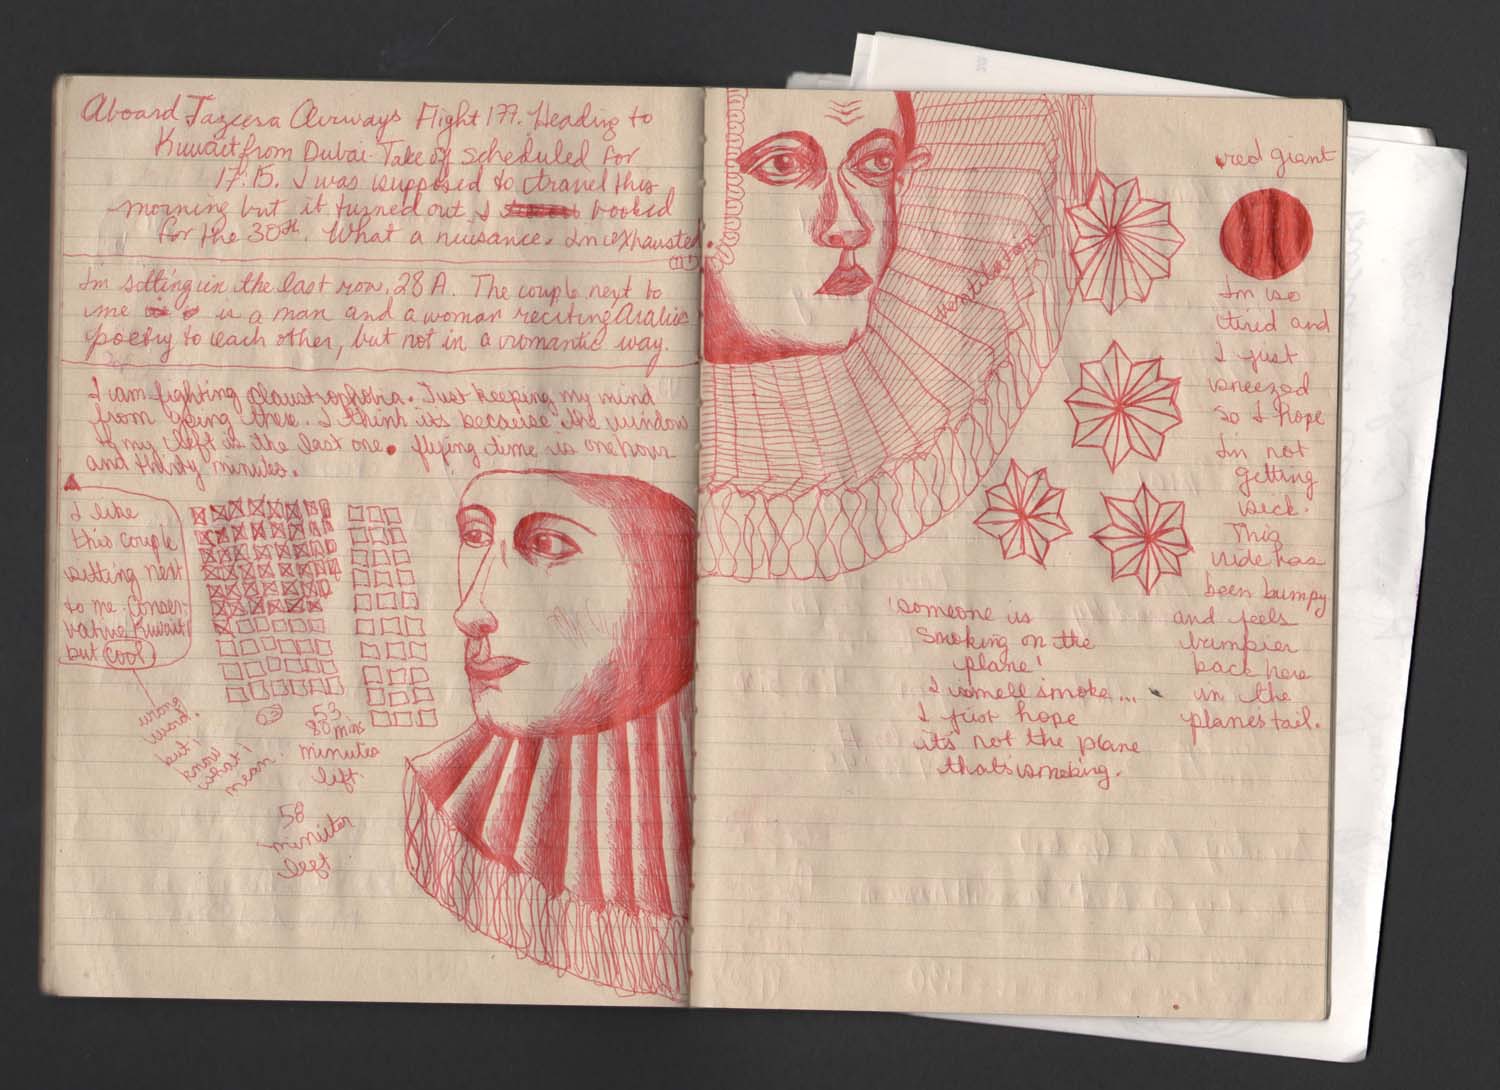 Aboard Jazeera Airways Flight 177. Heading to
Kuwait from Dubai. Take of scheduled for
17:15. I was supposed to travel this
morning but it turned out I booked
for the 30th. What a nuisance. Im exhausted.
Im sitting in the last row, 28 A. The couple next to
me is a man and a woman reciting Arabic
poetry to each other, but not in a romantic way.
I am fighting claustrophobia. Just keeping my mind
from going there. I think its because the window
to my left is the last one. flying time is one hour
and thirty minutes.
I like
this couple
sitting next
to me. Conser-
vative Kuwaiti
but cool
wrong
word.
but I
know
what I
mean.
53
80 mins
minutes
left.
58
minutes
left
ventilator
red giant
Im so
tired and
I just
sneezed
so I hope
Im not
getting
sick.
This
ride has
been bumpy
and feels
bumpier
back here
in the
planes tail.
'someone is
smoking on the
plane'
I smell smoke...
I just hope
it's not the plane
that's smoking.